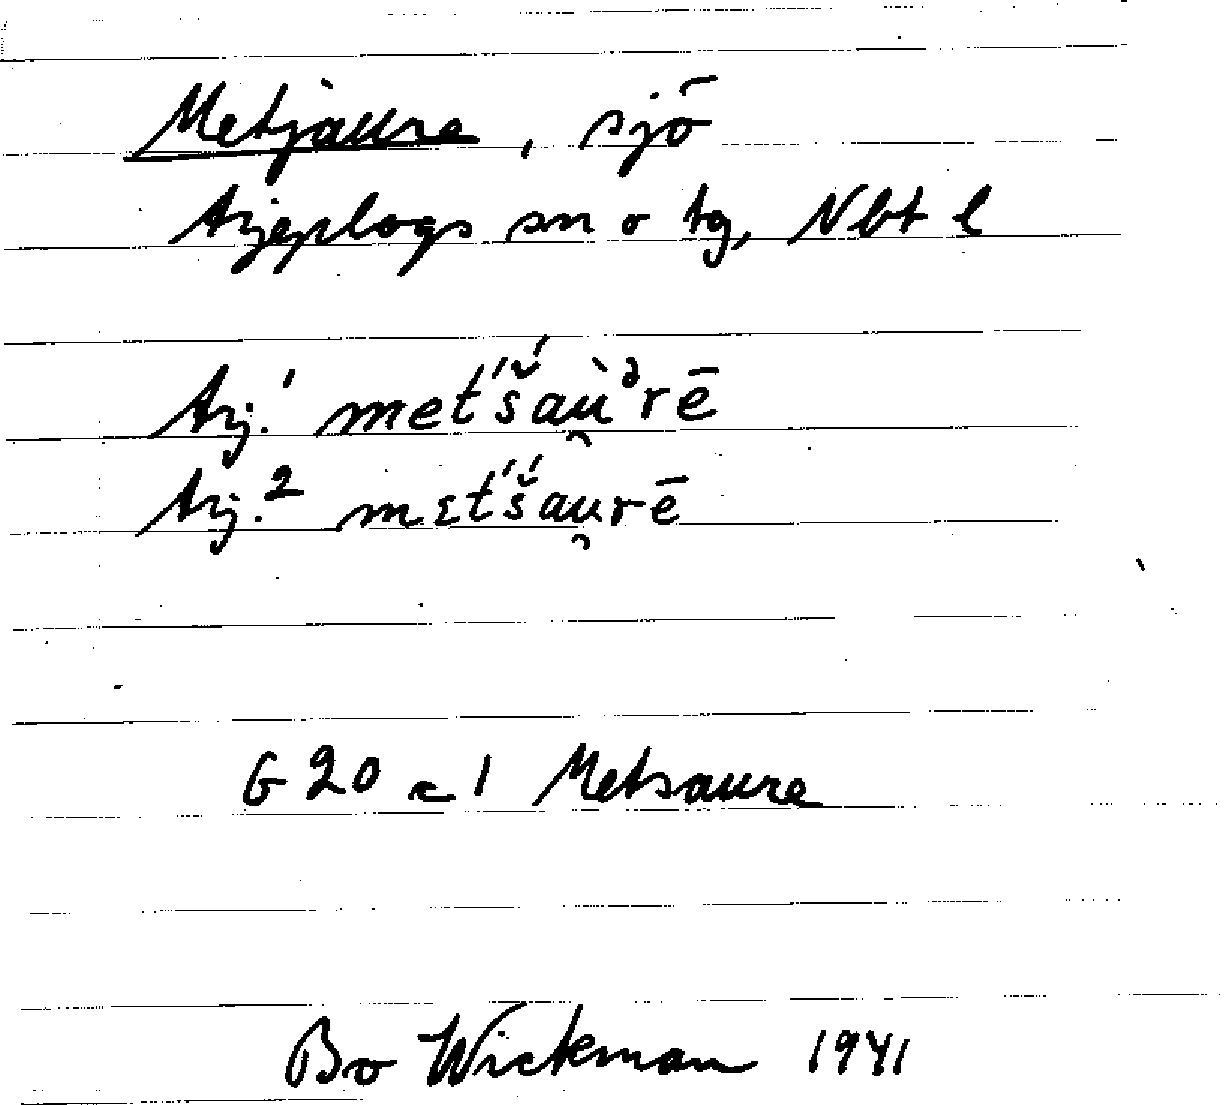 Metjaure, sjö
Arjeplogs sn o tg, Nbt l
Arj.¹ met́'š́aù̯ᵊrē
Arj.² mɛt́'š́au̯rē
G 20 c 1 Metsaure
Bo Wickman 1941